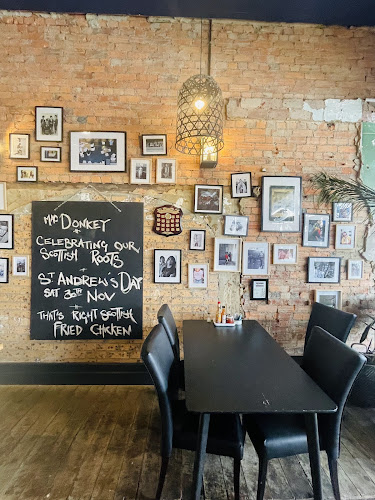 MAC DONKEY
CELEBRATING OUR
SCOTTISH ROOTS
ST ANDREW'S DAY
SAT 30TH NOV
THAT'S RIGHT SCOTTISH
FRIED CHICKEN